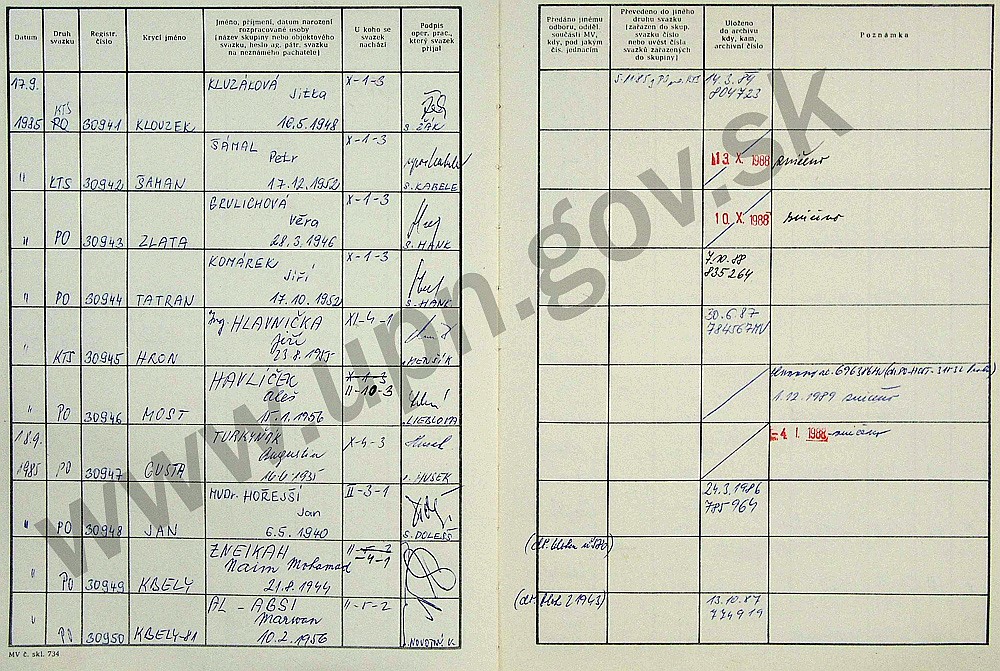 Datum
Druh svazku
Registr. číslo
Krycí jméno
Jméno, příjmení, datum narození
rozpracované osoby
(název skupiny nebo objektového
svazku, heslo ag. pátr. svazku
na neznámého pachatele)
U koho se svazek nachází
Podpis oper. prac., který svazek přijal
Předáno jinému
odboru, odděl.
součásti MV,
kdy, pod jakým
čís. jednacím
Převedeno do jiného
druhu svazku
(zařazen do skup.
svazku číslo
nebo uvést čísla
svazků zařazených
do skupiny)
Uloženo
do archivu
kdy, kam,
archivní číslo
Poznámka
17.9. KLUZÁKOVÁ X-1-3 14.3.89
KTS Jitka 804723
1985 PO 30941 KLOUZEK 16.5.1948 S. ŽÁK
ŠÁMAL X-1-3
Petr 13. X. 1988 zničeno
" KTS 30942 ŠAMAN 17.12.1952 S. KABELE
GRULICHOVÁ X-1-3
Věra 10. X. 1988 zničeno
" PO 30943 ZLATA 28.3.1946 S. HANK
KOMÁREK X-1-3 7.10.88
Jiří 835264
" PO 30944 TATRAN 17.10.1952 S. HANK
Ing. HLAVNIČKA XI-4-1 30.6.87
Jiří 784567MV
" KTS 30945 HRON 23.8.1955 MENŠÍK
HAVLÍČEK X-1-3
Aleš II-10-3 1.12.1989 zničeno
" PO 30946 MOST 15.1.1956
18.9. TURKYŇÁK X-4-3 -4. I. 1988 zničeno
Augustin
1985 PO 30947 GUSTA 16.6.1935 S. HUSEK
MUDr. HOŘEJŠÍ II-3-1 24.3.1986
Jan 785964
" PO 30948 JAN 6.5.1940 S. DOLEŠŠ
ZNEIKAH
Naim Mohamad -4-1
" PO 30949 KBELY 21.8.1944
AL-ABSI II-5-2 13.10.87
Marwan 774919
" PO 30950 KBELY-81 10.2.1956 S. NOVOTNÝ V.
MV č. skl. 734
www.upn.gov.sk